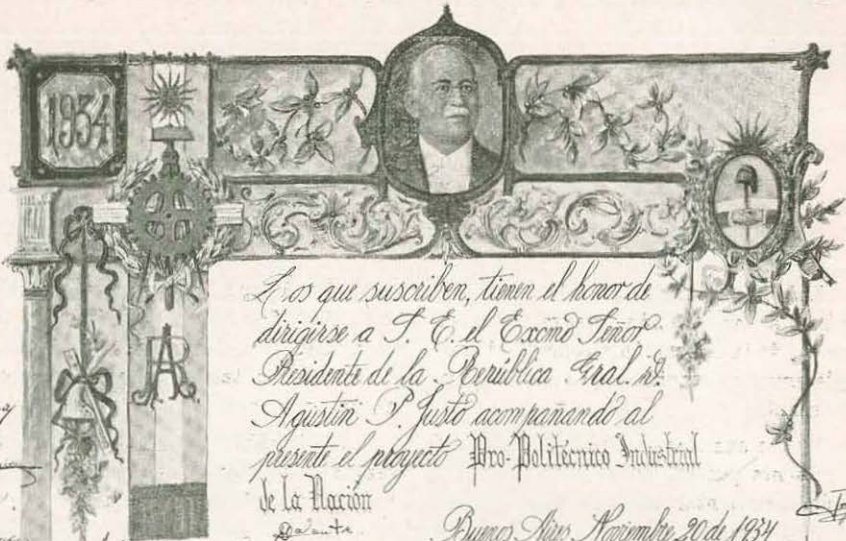 1934
RA
Los que suscriben, tienen el honor de
dirigirse a S. E. el Excmo Señor
Presidente de la República Gral. D.
Agustin P. Justo acompañando al
presente el proyecto Pro-Politécnico Industrial
de la Nación
Buenos Aires, Noviembre 20 de 1934